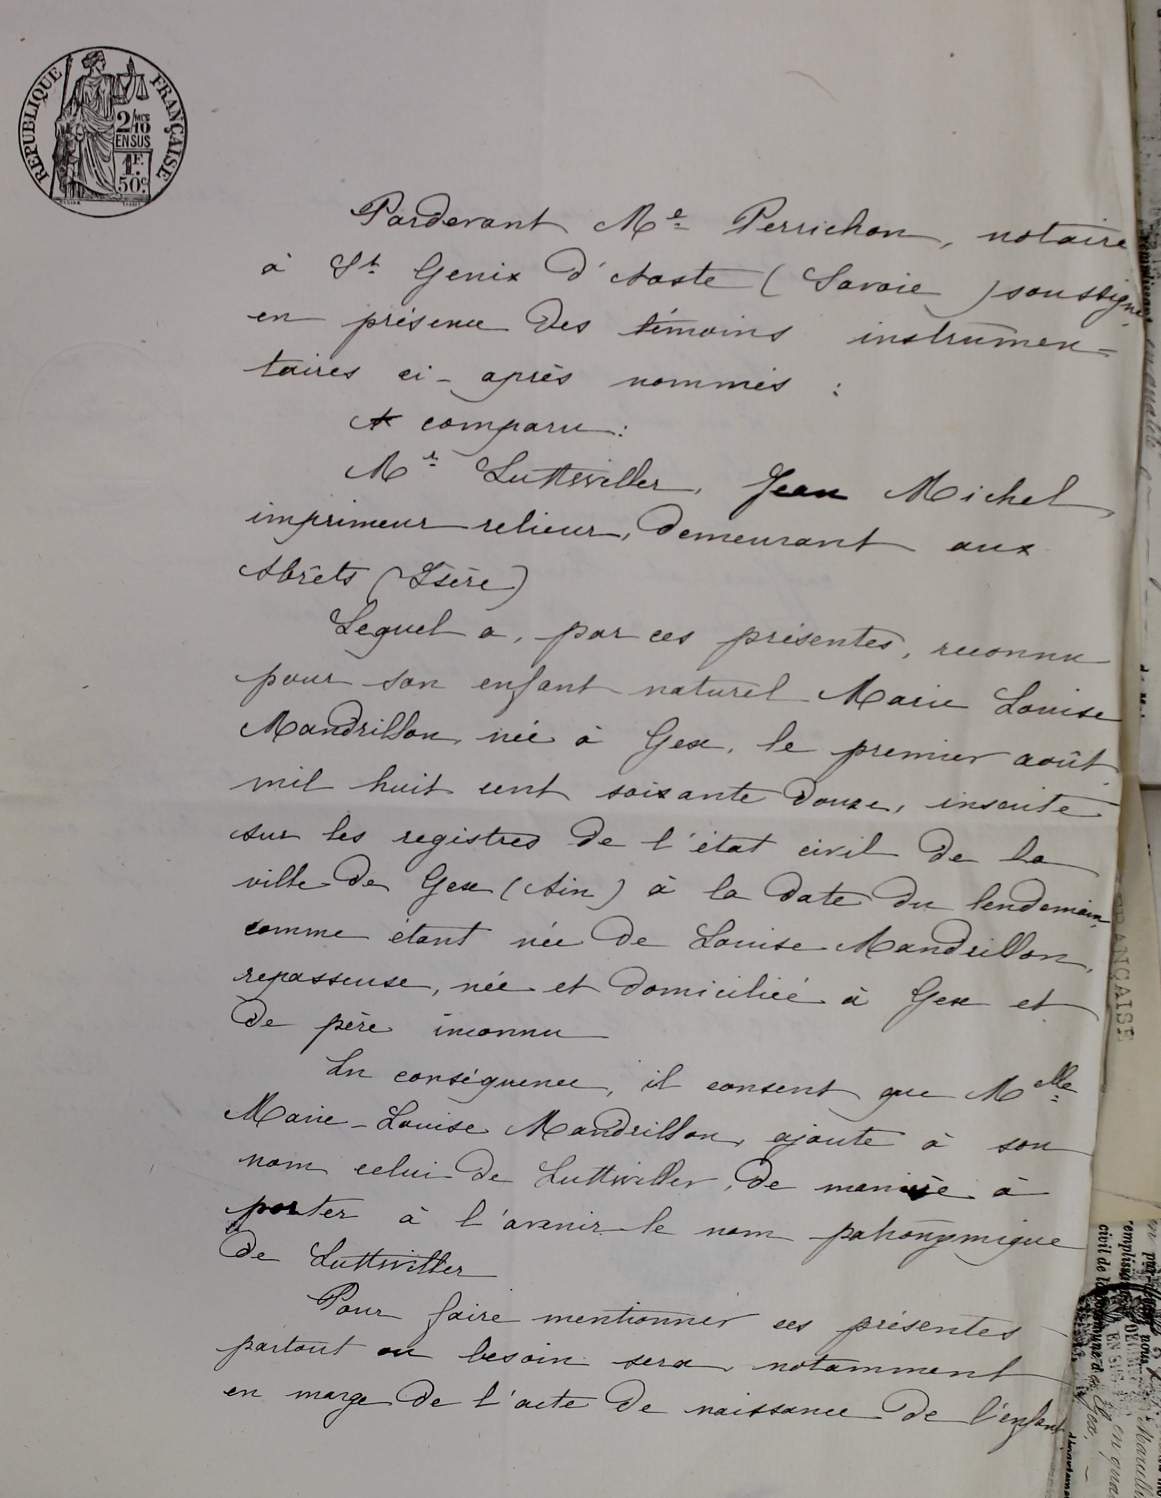 RÉPUBLIQUE FRANÇAISE
2/10
EN SUS
1F.
50c.
Pardevant Me Perrichon, notaire
à St Genix d'Aoste (Savoie) soussigné
en présence des témoins instrumen=
taires ci-après nommés :
A comparu :
Mr Luttwiller, Jean Michel
imprimeur relieur, demeurant aux
Abrêts (Isère)
Lequel a, par ces présentes, reconnu
pour son enfant naturel Marie Louise
Mandrillon, née à Gex, le premier août
mil huit cent soixante douze, inscrite
sur les registres de l'état civil de la
ville de Gex (Ain) à la date du lendemain,
comme étant née de Louise Mandrillon,
repasseuse, née et domiciliée à Gex et
de père inconnu
En conséquence, il consent que Melle
Marie-Louise Mandrillon, ajoute à son
nom celui de Luttwiller, de manière à
porter à l'avenir le nom patronymique
de Luttwiller
Pour faire mentionner ces présentes
partout ou besoin sera, notamment
en marge de l'acte de naissance de l'enfant
ANÇAISE
civil de la